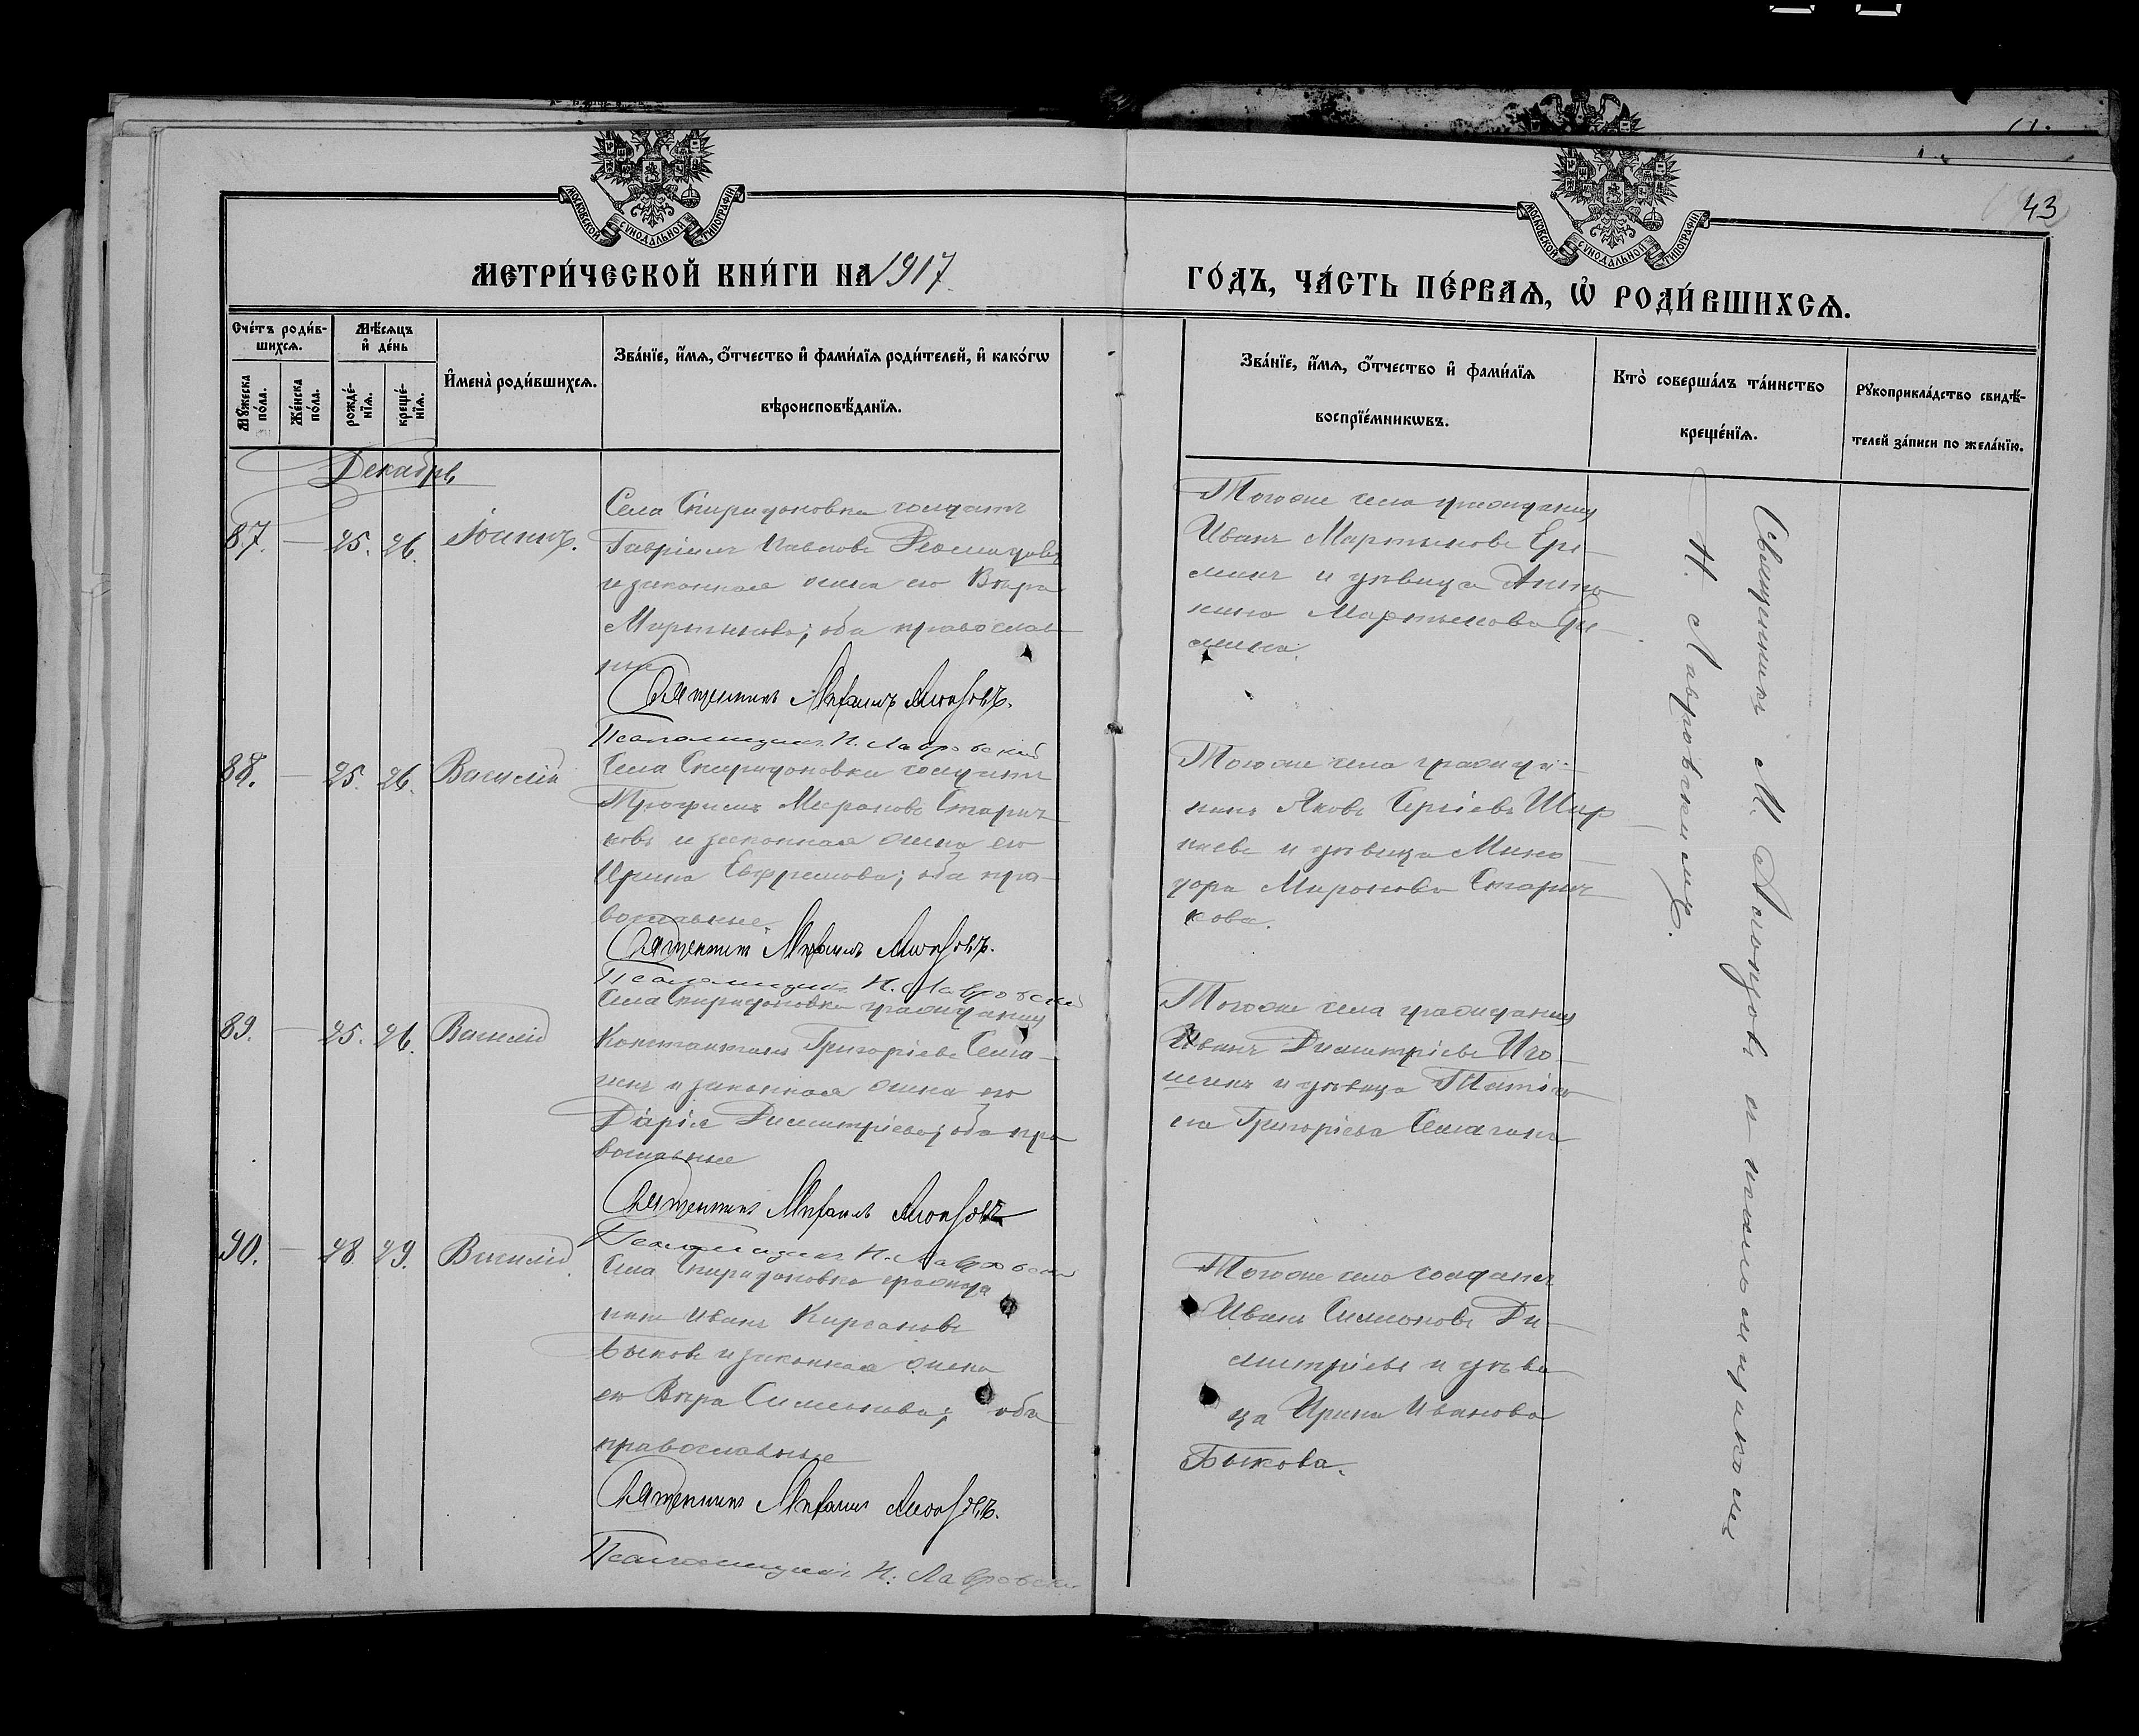 43
МОСКОВСКОЙ СѴНОДАЛЬНОЙ ТИПОГРАФІИ
МОСКОВСКОЙ СѴНОДАЛЬНОЙ ТИПОГРАФІИ
МЕТРИ́ЧЕСКОЙ КНИ́ГИ НА 1917.
ГО́ДЪ, ЧА́СТЬ ПЕ́РВАѦ, Ѽ РОДИ́ВШИХСѦ.
Сче́тъ роди́в-
шихсѧ.
Мѣ́сѧцъ
и҆ де́нь
Мꙋ́жеска
по́ла.
Же́нска
по́ла.
рожде́-
нїѧ.
креще́-
нїѧ.
И҆мена̀ роди́вшихсѧ.
Зва́нїе, и҆́мѧ, ѻ҆́тчество и҆ фами́лїѧ роди́телей, и҆ како́гѡ
вѣроисповѣ́данїѧ.
Зва́нїе, и҆́мѧ, ѻ҆́тчество и҆ фами́лїѧ
воспрїе́мникѡвъ.
Кто̀ соверша́лъ та́инство
креще́нїѧ.
Рꙋкоприкла́дство свидѣ́-
телей за́писи по жела́нїю.
Декабрь
87. — 25. 26. Іоаннъ.
Села Спиридоновки солдатъ
Гавріилъ Павловъ
и законная жена его Вѣра
Мартынова; оба православ-
ные
Священникъ Михаилъ Алонзовъ.
Псаломщикъ Н. Лавровскій
Тогоже села гражданинъ
Иванъ Мартыновъ Ере-
минъ и дѣвица Анто-
нина Мартынова Ере-
мина.
88. — 25. 26. Василій
Села Спиридоновки солдатъ
Трофимъ Мироновъ Старич-
ковъ и законная жена его
Ирина Ефремова; оба пра-
вославные.
Священникъ Михаилъ Алонзовъ.
Псаломщикъ Н. Лавровскій
Тогоже села гражда-
нинъ Яковъ Сергіевъ Шир-
яевъ и дѣвица Мино-
дора Миронова Старич-
кова.
89. — 25. 26. Василій
Села Спиридоновки гражданинъ
Константинъ Григоріевъ
и законная жена его
Дарія Димитріева; оба пра-
вославные
Священникъ Михаилъ Алонзовъ
Псаломщикъ Н. Лавровскій
Тогоже села гражданинъ
Иванъ Димитріевъ Иго-
шинъ и дѣвица Татія-
на Григоріева
90. — 28 29. Василій
Села Спиридоновки гражда-
нинъ Иванъ Кирсановъ
Быковъ и законная жена
его Вѣра Симеонова; оба
православные
Священникъ Михаилъ Алонзовъ.
Псаломщикъ Н. Лавровскій
Тогоже села солдатъ
Иванъ Симеоновъ Ди-
митріевъ и дѣви-
ца Ирина Иванова
Быкова.
Священникъ М. Алонзовъ и псаломщикомъ
Н. Лавровскимъ.